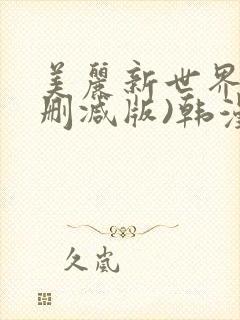 美麗新世界
删减版)韩漫
久嵐